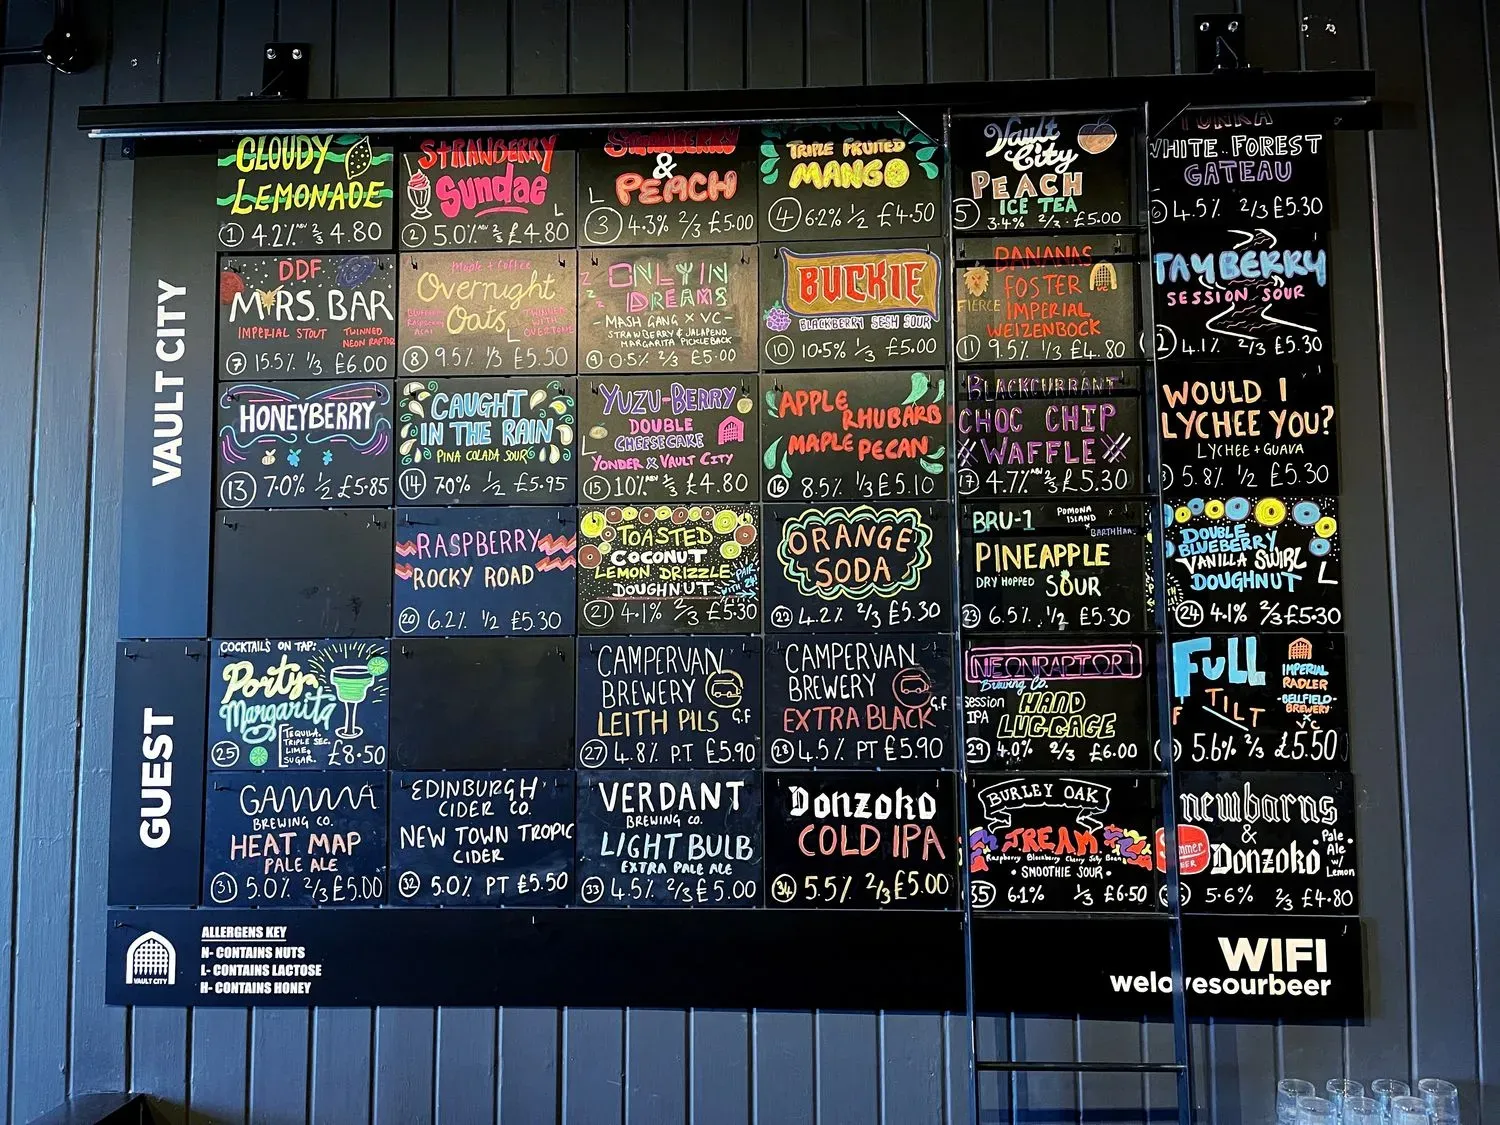 VAULT CITY
CLOUDY
LEMONADE
1 4.2% ABV 2/3 4.80
STRAWBERRY
Sundae
L
2 5.0% ABV 2/3 £4.80
STRAWBERRY
&
PEACH
L
3 4.3% 2/3 £5.00
TRIPLE FRUITED
MANGO
4 6.2% 1/2 £4.50
Vault
City
PEACH
ICE TEA
5 3.4% 2/3 £5.00
TONKA
WHITE FOREST
GATEAU
6 4.5% 2/3 £5.30
DDF
MRS. BAR
IMPERIAL STOUT TWINNED
NEON RAPTOR
7 15.5% 1/3 £6.00
Maple + Coffee
Overnight
Oats
BLUEBERRY
RASPBERRY
ACAI
TWINNED
WITH
OVERTONE
L
8 9.5% 1/3 £5.50
ONLY IN
DREAMS
- MASH GANG X VC -
STRAWBERRY & JALAPENO
MARGARITA PICKLEBACK
9 0.5% 2/3 £5.00
BUCKIE
BLACKBERRY SESH SOUR
10 10.5% 1/3 £5.00
BANANAS
FOSTER
FIERCE
VC
IMPERIAL
WEIZENBOCK
11 9.5% 1/3 £4.80
TAYBERRY
SESSION SOUR
2 4.1% 2/3 £5.30
HONEYBERRY
13 7.0% 1/2 £5.85
CAUGHT
IN THE RAIN
PINA COLADA SOUR
14 7.0% 1/2 £5.95
YUZU-BERRY
DOUBLE
CHEESECAKE
YONDER X VAULT CITY
15 10% ABV 1/3 £4.80
APPLE
RHUBARB
MAPLE PECAN
16 8.5% 1/3 £5.10
BLACKCURRANT
CHOC CHIP
WAFFLE
17 4.7% ABV 2/3 £5.30
WOULD I
LYCHEE YOU?
LYCHEE + GUAVA
5.8% 1/2 £5.30
RASPBERRY
ROCKY ROAD
20 6.2% 1/2 £5.30
TOASTED
COCONUT
LEMON DRIZZLE
DOUGHNUT
PAIR
WITH 24!
21 4.1% 2/3 £5.30
ORANGE
SODA
22 4.2% 2/3 £5.30
BRU-1
POMONA
ISLAND
X
BARTHHAAS
PINEAPPLE
DRY HOPPED SOUR
23 6.5% 1/2 £5.30
DOUBLE
BLUEBERRY
VANILLA SWIRL
DOUGHNUT
L
24 4.1% 2/3 £5.30
GUEST
COCKTAILS ON TAP:
Party
Margarita
TEQUILA,
TRIPLE SEC,
LIME,
SUGAR.
25 £8.50
CAMPERVAN
BREWERY
LEITH PILS G.F
27 4.8% P.T. £5.90
CAMPERVAN
BREWERY
G.F
EXTRA BLACK
28 4.5% PT £5.90
NEONRAPTOR
Brewing Co.
Session
IPA
HAND
LUGGAGE
29 4.0% 2/3 £6.00
FULL
TILT
IMPERIAL
RADLER
-BELLFIELD-
BREWERY
X
VC
5.6% 2/3 £5.50
GAMMA
BREWING CO.
HEAT MAP
PALE ALE
31 5.0% 2/3 £5.00
EDINBURGH
CIDER CO.
NEW TOWN TROPIC
CIDER
32 5.0% PT £5.50
VERDANT
BREWING CO.
LIGHT BULB
EXTRA PALE ALE
33 4.5% 2/3 £5.00
Donzoko
COLD IPA
34 5.5% 2/3 £5.00
BURLEY OAK
JREAM
Raspberry Blackberry Cherry Jelly Bean
• SMOOTHIE SOUR •
35 6.1% 1/3 £6.50
newbarns
&
Donzoko
Pale
Ale
w/
Lemon
5.6% 2/3 £4.80
VAULT CITY
ALLERGENS KEY
N- CONTAINS NUTS
L- CONTAINS LACTOSE
H- CONTAINS HONEY
WIFI
welovesourbeer